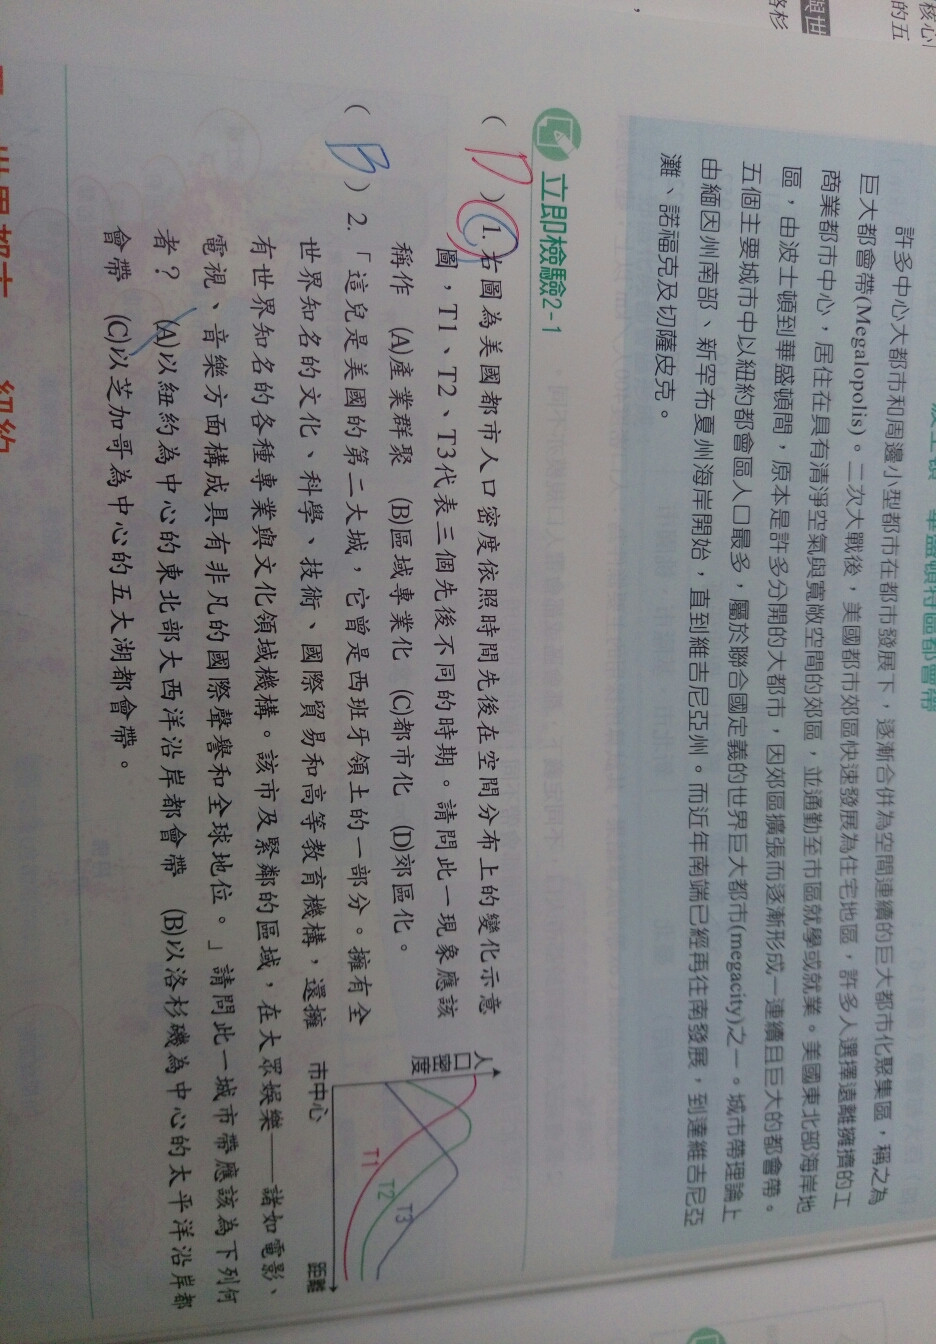 許多中心大都市和周邊小型都市在都市發展下，逐漸合併為空間連續的巨大都市化聚集區，稱之為
巨大都會帶(Megalopolis)。二次大戰後，美國都市郊區快速發展為住宅地區，許多人選擇遠離擁擠的工
商業都市中心，居住在具有清淨空氣與寬敞空間的郊區，並通勤至市區就學或就業。美國東北部海岸地
區，由波士頓到華盛頓間，原本是許多分開的大都市，因郊區擴張而逐漸形成一連續且巨大的都會帶。
五個主要城市中以紐約都會區人口最多，屬於聯合國定義的世界巨大都市(megacity)之一。城市帶理論上
由緬因州南部、新罕布夏州海岸開始，直到維吉尼亞州。而近年南端已經再往南發展，到達維吉尼亞
灘、諾福克及切薩皮克。
立即檢驗2-1
( D )1.右圖為美國都市人口密度依照時間先後在空間分布上的變化示意
圖，T1、T2、T3代表三個先後不同的時期。請問此一現象應該
稱作 (A)產業群聚 (B)區域專業化 (C)都市化 (D)郊區化。
( B )2.「這兒是美國的第二大城，它曾是西班牙領土的一部分。擁有全
世界知名的文化、科學、技術、國際貿易和高等教育機構，還擁
有世界知名的各種專業與文化領域機構。該市及緊鄰的區域，在大眾娛樂——諸如電影、
電視、音樂方面構成具有非凡的國際聲譽和全球地位。」請問此一城市帶應該為下列何
者？ (A)以紐約為中心的東北部大西洋沿岸都會帶 (B)以洛杉磯為中心的太平洋沿岸都
會帶 (C)以芝加哥為中心的五大湖都會帶。
人口密度
T1
T2
T3
市中心
距離
紐約